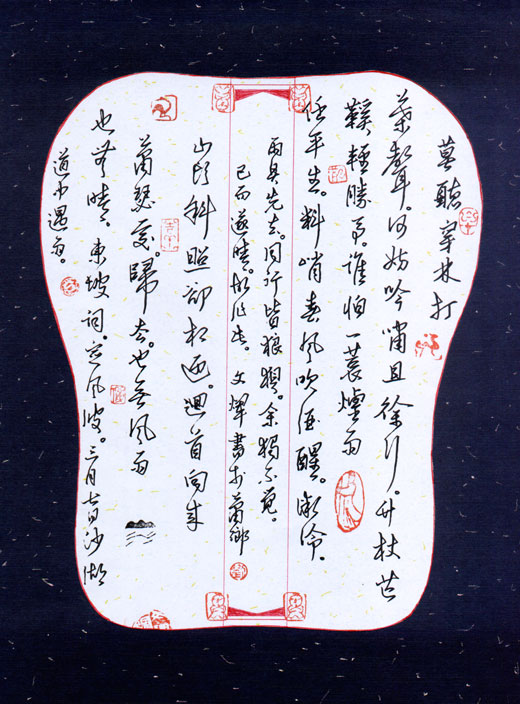 莫聽穿林打
葉聲。何妨吟嘯且徐行。竹杖芒
鞵輕勝馬。誰怕一蓑煙雨
任平生。料峭春風吹酒醒。微冷。
雨具先去。同行皆狼狽。余獨不覺。
已而遂晴。故作此。文書於
山頭斜照卻相迎。迴首向來
蕭瑟處。歸去。也無風雨
也無晴。東坡詞。定風波。三月七日沙湖
道中遇雨。